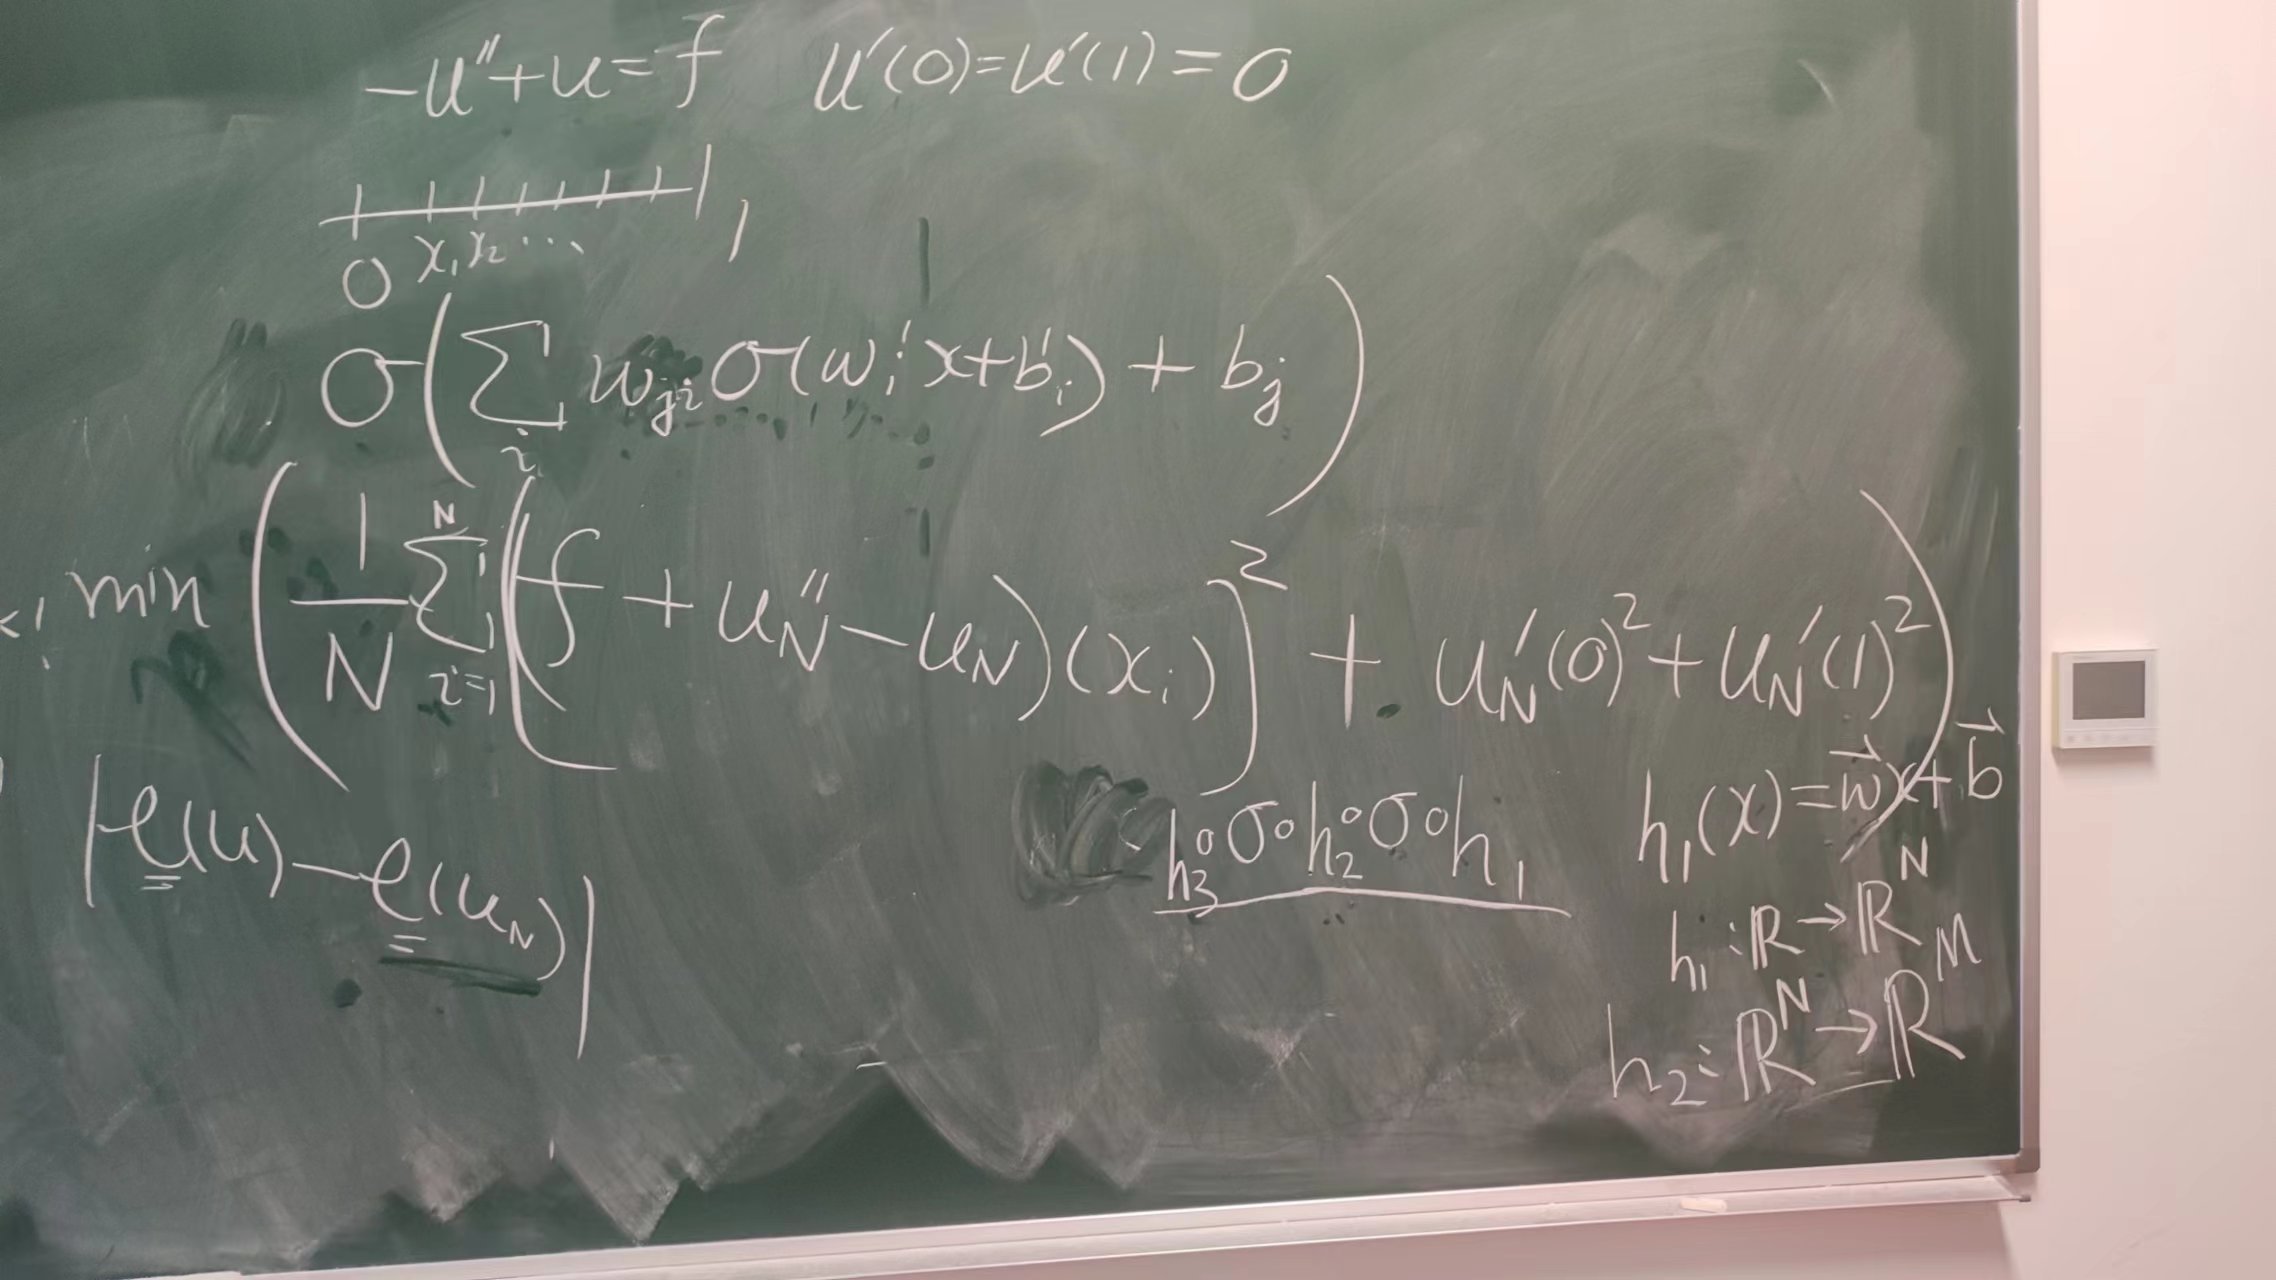 -u''+u=f u'(0)=u'(1)=0
0 x₁ x₂ ... 1
σ(∑ᵢ wⱼᵢ σ(wᵢ'x+bᵢ')+bⱼ)
min (1/N ∑ᵢ₌₁ᴺ [(f+u_N''-u_N)(xᵢ)]²+u_N'(0)²+u_N'(1)²)
|ℓ(u)-ℓ(u_N)|
h₃∘σ∘h₂∘σ∘h₁
h₁(x)=w⃗x+b⃗
h₁:ℝ→ℝᴺ
h₂:ℝᴺ→ℝᴹ